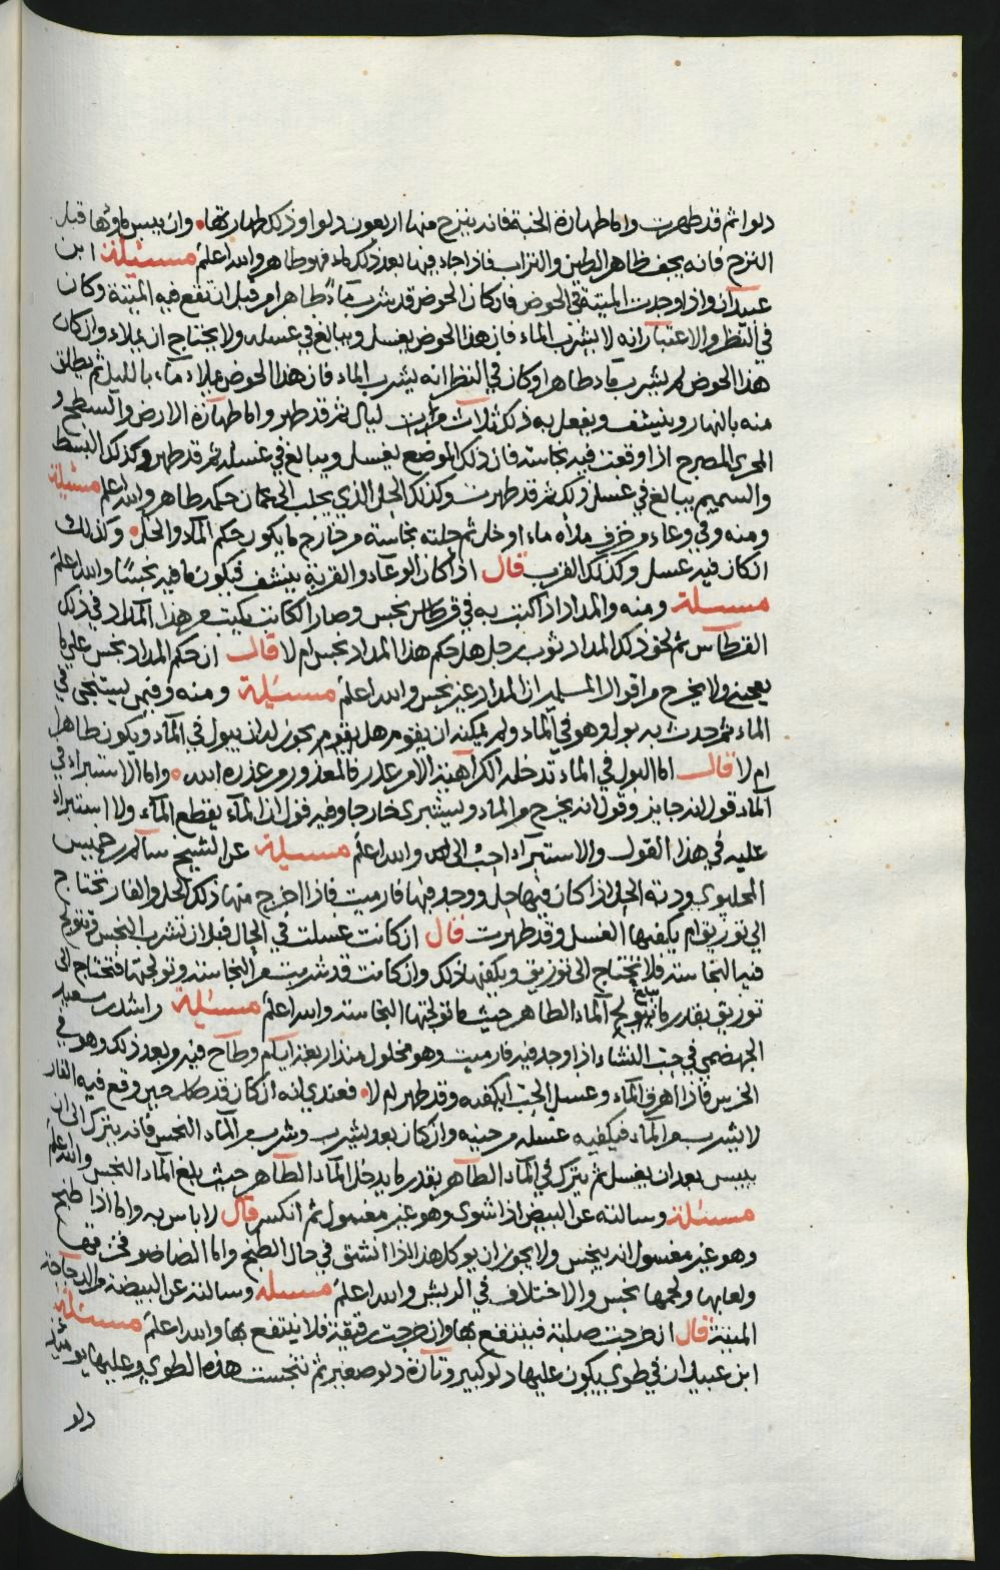 دلوا ثم قد طهرت واما طهارة الخبة فانه ينزح منها اربعون دلوا وذلك طهارتها وان يبس ماؤها قبل
النزح فانه يجف ظاهر الطين والتراب فاذا جاء فيها بعد ذلك ماء فهو طاهر والله اعلم مسئلة ابن
عبيدان واذا وجدت الميتة في الحوض فان كان الحوض قد يشرب ماءً طاهرا من قبل ان تقع فيه الميتة وكان
في النظر والاعتبار انه لا يشرب الماء فان هذا الحوض يغسل ويبالغ في غسله ولا يحتاج ان يملاء وان كان
هذا الحوض لم يشرب ماء طاهرا وكان في النظر انه يشرب الماء فان هذا الحوض يملاء ماء بالليل ثم يطلق
منه بالنهار وينشف ويفعل به ذلك ثلاث مرات ليال ثم قد طهر واما طهارة الارض والسطح و
المصرح اذا وقعت فيه نجاسة فان ذلك الموضع يغسل ويبالغ في غسله ثم قد طهر وكذلك البسط
والسميم يبالغ في غسل ذلك ثم قد طهرت وكذلك الحل الذي يجلب الى عمان حكمه طاهر والله اعلم مسئلة
ومنه وفي وعاء من خزف ملآه ماء او خل ثم جاءته نجاسة من خارج ما يكون حكم الماء والخل وكذلك
ان كان فيه عسل وكذلك القرب قال اذا كان الوعاء والقربة ينشف فيكون ما فيه نجسًا والله اعلم
مسئلة ومنه والمداد اذا كتب به في قرطاس نجس وصار الكاتب يكتب من هذا المداد في ذلك
القرطاس ثم لحق ذلك المداد ثوب رجل هل حكم هذا المداد نجس ام لا قال ان حكم المداد نجس على ما
يعجبني ولا يخرج من اقوال المسلمين ان المداد غير نجس والله اعلم مسئلة ومنه وفيمن يستنجي في
الماء ثم حدث به بول وهو في الماء ولم يمكنه ان يقوم هل يجوز له ان يبول في الماء ويكون طاهرا
ام لا قال اما البول في الماء تدخله الكراهية الا من عذر فالمعذور من عذره الله واما الاستبراء في
الماء قول انه جايز وقول انه يخرج من الماء ويستبري خارجا وفيه قول ان الماء يقطع الماء ولا استبراء
عليه في هذا القول والاستبراء احب الي والله اعلم مسئلة عن الشيخ سالم بن خميس
المحليوي ودبة الحل اذا كان فيها حل ووجد فيها فار ميت فاذا اخرج منها ذلك الحل والفار تحتاج
الى توزيق ام يكفيها الغسل وقد طهرت قال ان كانت غسلت في الحال قبل ان تشرب النجس وتولج
فيها النجاسة فلا تحتاج الى توزيق ويكفيها ذلك وان كانت قد شربت من النجاسة وتولجتها فتحتاج الى
توزيق بقدر ما يولج الماء الطاهر حيث ما تولجتها النجاسة والله اعلم مسئلة راشد بن سعيد
الجهضمي في جب النشاء اذا وجد فيه فار ميت وهو مخلول منذ اربعة ايام وطاح فيه وبعد ذلك وهو في
الخرس فاذا اهرق الماء وغسل الجب ايكفيه وقد طهر ام لا فعندي انه ان كان قد حين وقع فيه الفار
لا يشرب من الماء فيكفيه غسله من حينه وان كان بعد يشرب وشرب من الماء النجس فانه يترك الى ان
ييبس بعد ان يغسل ثم يترك في الماء الطاهر بقدر ما يدخل الماء الطاهر حيث بلغ الماء النجس والله اعلم
مسئلة وسالته عن البيض اذا شوي وهو غير مغسول ثم انكسر قال لا باس به واما اذا طبخ
وهو غير مغسول انه ينجس ولا يجوز ان يوكل هذا اذا انشق في حال الطبخ واما الضاضو فخزقها
ولعابها ولحمها نجس والاختلاف في الريش والله اعلم مسئلة وسالته عن البيضة من الدجاجة
الميتة قال ان خرجت صلبة فينتفع بها وان خرجت رقيقة فلا ينتفع بها والله اعلم مسئلة
ابن عبيدان في طوي يكون عليها دلو كبير وتارة دلو صغير ثم تنجست هذه الطوي وعليها يومئذ
دلو